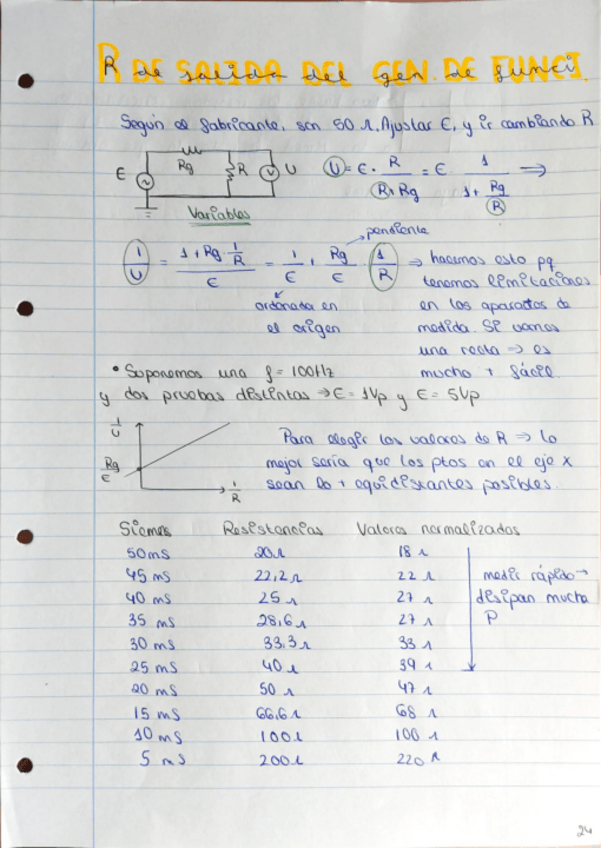 R DE SALIDA DEL GEN. DE FUNCI.
Según el fabricante, son 50 Ω. Ajustar E, y ir cambiando R
E Rg R V U U = E · R / (R+Rg) = E 1 / (1 + Rg/R) ⇒
Variables
1/U = (1 + Rg · 1/R) / E = 1/E + Rg/E · 1/R ⇒ hacemos esto pq
pendiente
tenemos limitaciones
ordenada en en los aparatos de
el origen medida. Si vemos
una recta ⇒ es
• Suponemos una f = 100Hz mucho + fácil.
y dos pruebas distintas → E = 1Vp y E = 5Vp
1/U
Para elegir los valores de R ⇒ lo
Rg/E mejor sería que los ptos en el eje x
1/R sean lo + equidistantes posibles.
Siemes Resistencias Valores normalizados
50mS 20Ω 18 Ω
45 mS 22,2Ω 22 Ω medir rápido →
40 mS 25 Ω 27 Ω disipan mucha
35 mS 28,6Ω 27 Ω P
30 mS 33,3Ω 33 Ω
25 mS 40Ω 39 Ω
20 mS 50 Ω 47 Ω
15 mS 66,6Ω 68 Ω
10 mS 100Ω 100 Ω
5 mS 200Ω 220 Ω
24